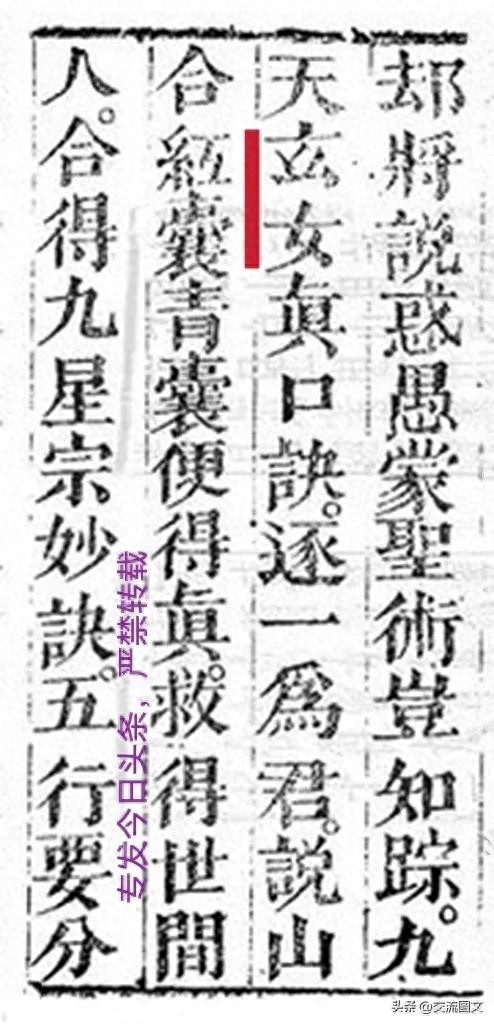 却將說惑愚蒙聖術豈知踪。九
天玄女眞口訣。逐一爲君。說山
合紅囊青囊便得眞。救得世間
人。合得九星宗。妙訣。五行要分
专发今日头条，严禁转载
头条 @交流图文